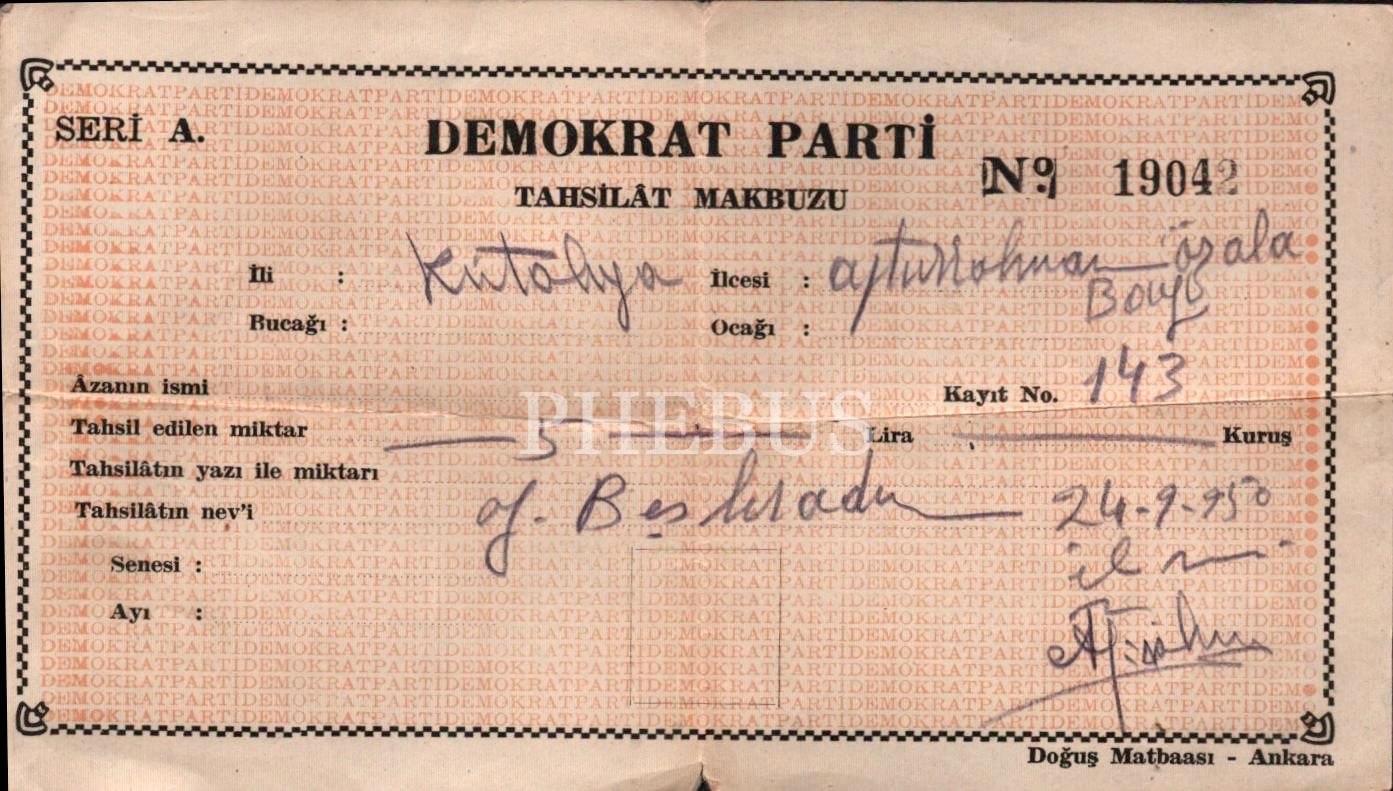 SERİ A.
DEMOKRAT PARTİ
No. 19042
TAHSİLÂT MAKBUZU
İli : Kütahya İlcesi :
Bucağı : Ocağı :
Âzanın ismi Kayıt No. 143
Tahsil edilen miktar 5 Lira Kuruş
PHEBUS
Tahsilâtın yazı ile miktarı
Tahsilâtın nev'i Beş liradır 24-9-950
Senesi :
Ayı :
Doğuş Matbaası - Ankara